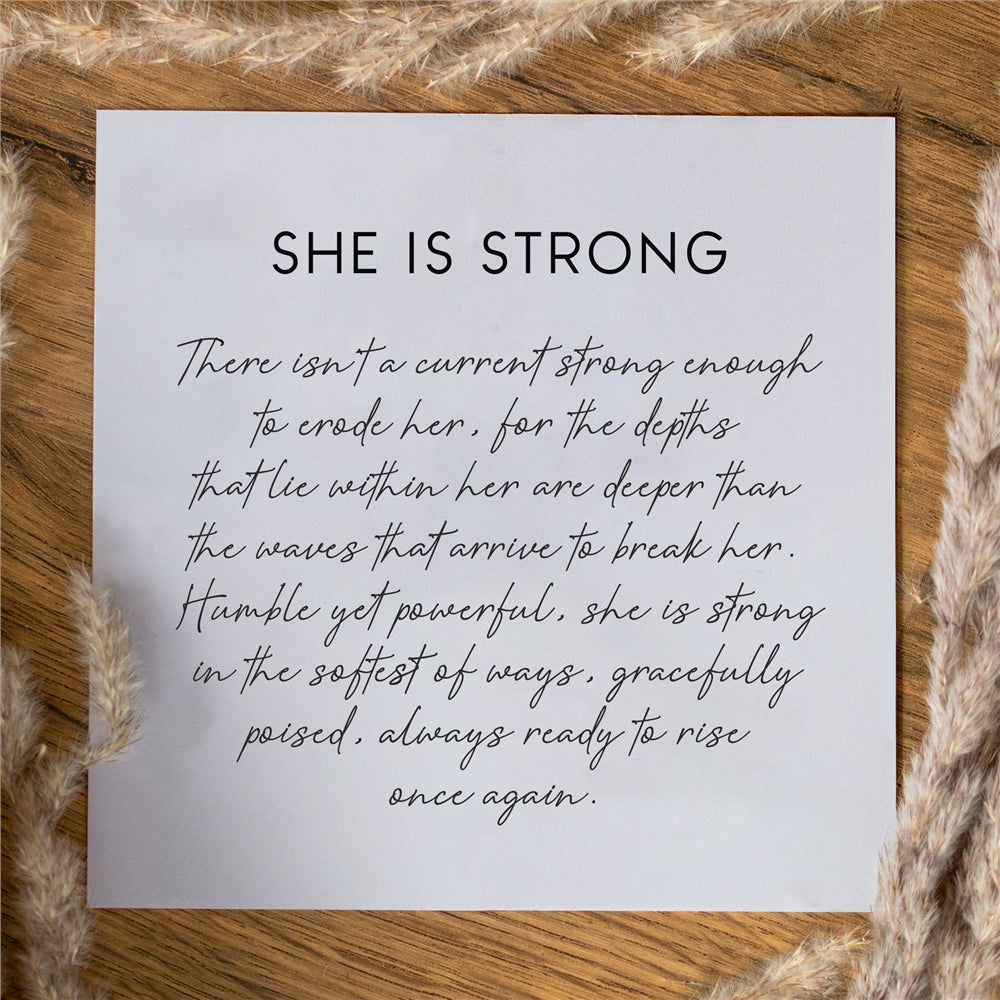 SHE IS STRONG
There isn't a current strong enough
to erode her, for the depths
that lie within her are deeper than
the waves that arrive to break her.
Humble yet powerful, she is strong
in the softest of ways, gracefully
poised, always ready to rise
once again.